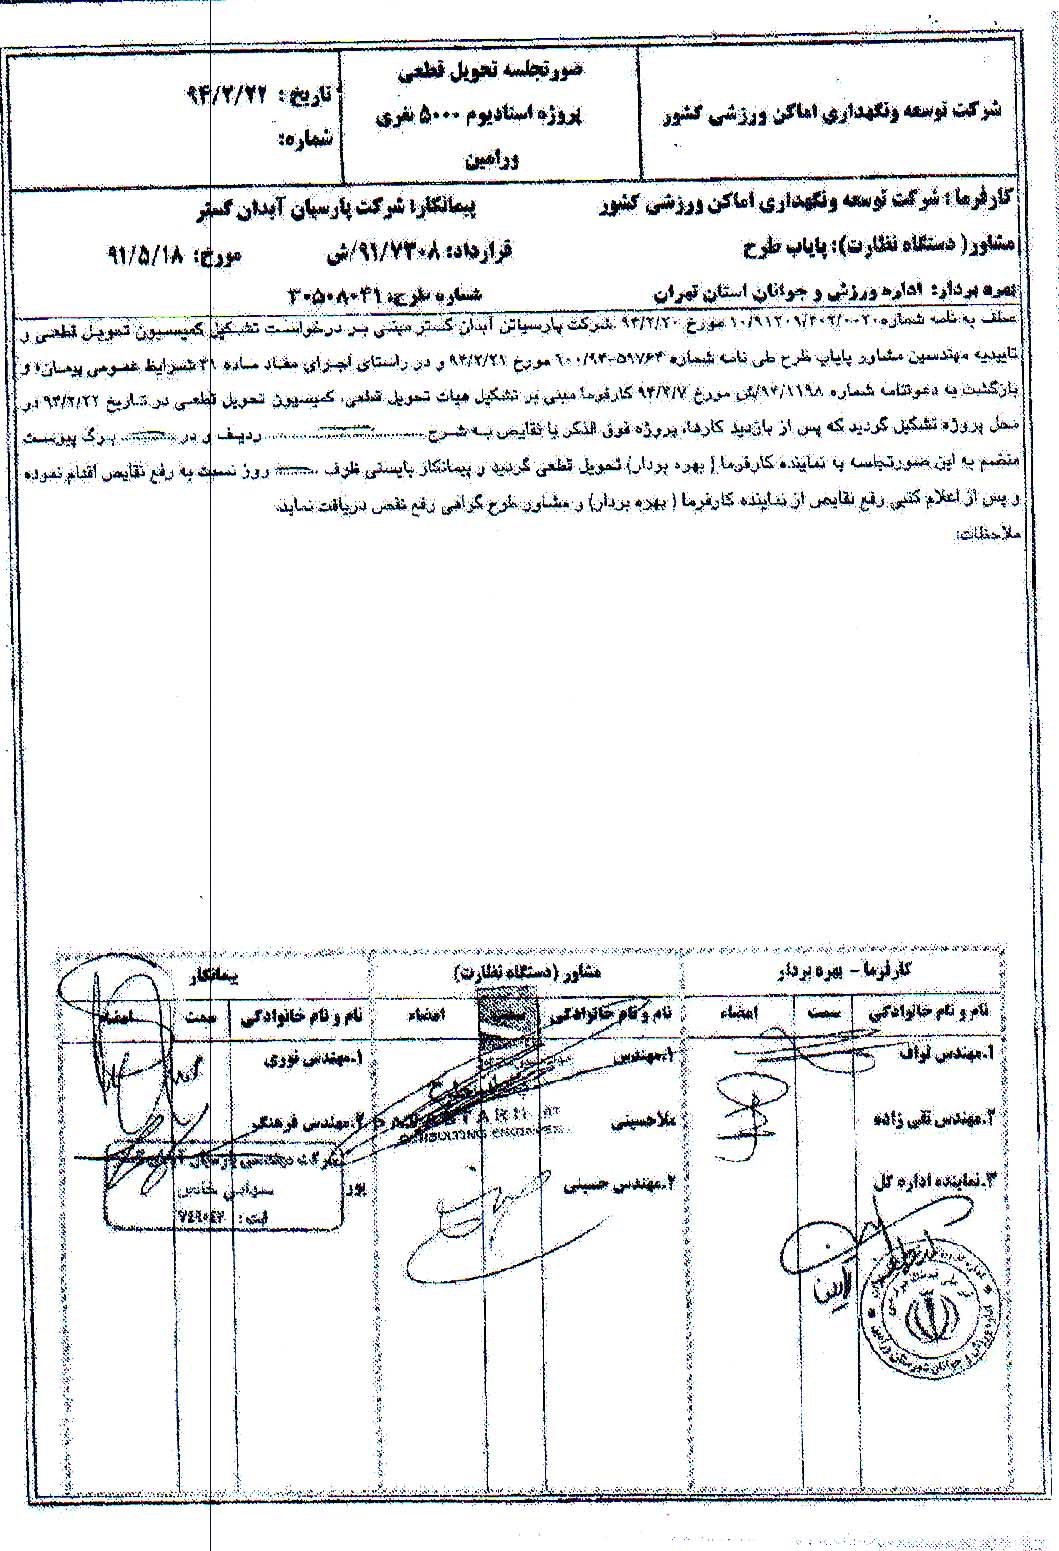 شرکت توسعه ونگهداری اماکن ورزشی کشور
صورتجلسه تحویل قطعی
پروژه استادیوم ۵۰۰۰ نفری
ورامین
تاریخ : ۹۴/۲/۲۲
شماره:
کارفرما : شرکت توسعه ونگهداری اماکن ورزشی کشور پیمانکار: شرکت پارسیان آبدان گستر
مشاور( دستگاه نظارت): پایاب طرح قرارداد: ۹۱/۷۳۰۸/ش مورخ: ۹۱/۵/۱۸
بهره بردار: اداره ورزش و جوانان استان تهران شماره طرح: ۳۰۵۰۸۰۴۱
عطف به نامه شماره مورخ ۹۴/۲/۲۰ شرکت پارسیاتن آبدان گستر مبنی بر درخواست تشکیل کمیسیون تحویل قطعی و
تاییدیه مهندسین مشاور پایاب طرح طی نامه شماره ۱۰۰/۹۴-۵۹۷۶۴ مورخ ۹۴/۲/۲۱ و در راستای اجرای مفاد ماده ۴۱ شرایط عمومی پیمان و
بازگشت به دعوتنامه شماره ۹۴/۱۱۹۸/ش مورخ ۹۴/۳/۷ کارفرما مبنی بر تشکیل هیات تحویل قطعی، کمیسیون تحویل قطعی در تاریخ ۹۴/۲/۲۲ در
محل پروژه تشکیل گردید که پس از بازدید کارها، پروژه فوق الذکر با نقایص به شرح ............ ردیف و در ............ برگ پیوست
منضم به این صورتجلسه به نماینده کارفرما ( بهره بردار) تحویل قطعی گردید و پیمانکار بایستی ظرف ............ روز نسبت به رفع نقایص اقدام نموده
و پس از اعلام کتبی رفع نقایص از نماینده کارفرما ( بهره بردار) و مشاور طرح گواهی رفع نقص دریافت نماید.
ملاحظات:
کارفرما - بهره بردار مشاور (دستگاه نظارت) پیمانکار
نام و نام خانوادگی سمت امضاء نام و نام خانوادگی سمت امضاء نام و نام خانوادگی سمت امضاء
۱.مهندس لواف ۱.مهندس ۱.مهندس نوری
۲.مهندس تقی زاده ملاحسینی ۲.مهندس فرهنگ
۳.نماینده اداره کل ۲.مهندس حسینی پور
CONSULTING ENGINEERS
شرکت مهندسی پارسیان آبدان
سهامی خاص